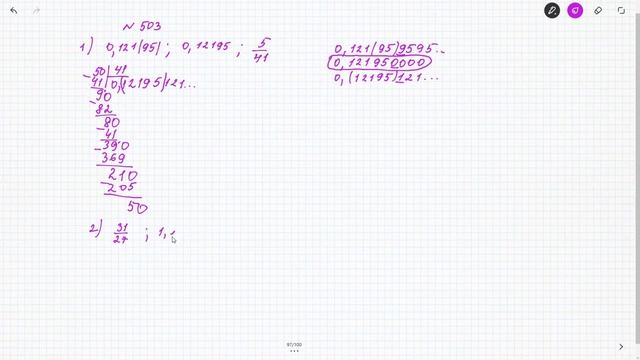 N 503
1) 0,121(95) ; 0,12195 ; 5/41
50 | 41
41 | 0,(12195)121...
90
82
80
41
390
369
210
205
50
2) 31/27 ; 1,1
0,121(95)9595...
0,121950000
0,(12195)121...
97/100